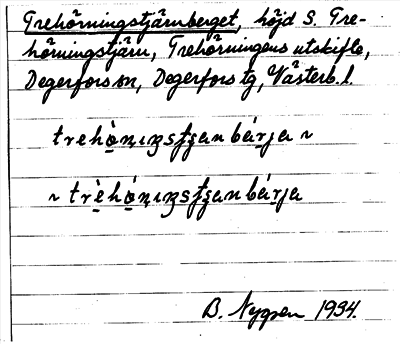 Trehörningstjärnberget, höjd S. Tre-
hörningstjärn, Trehörningens utskifte,
Degerfors sn, Degerfors tg, Västerb. l.
trehö̀ṇıŋsʈʂanbárja ~
~ trèhö́ṇıŋsʈʂanbárja
B. Nygren 1934.